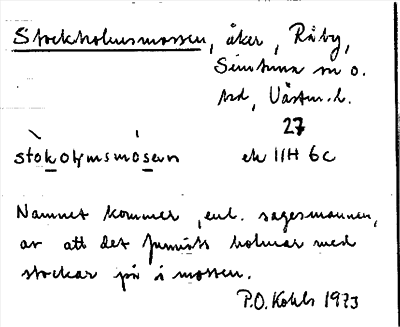 Stockholmsmossen, åker, Råby,
Simtuna sn o.
hd, Västm. l.
27
stòkolmsmósen ek 11H 6c
Namnet kommer, enl. sagesmannen,
av att det funnits holmar med
stockar på i mossen.
P.O. Kohls 1973